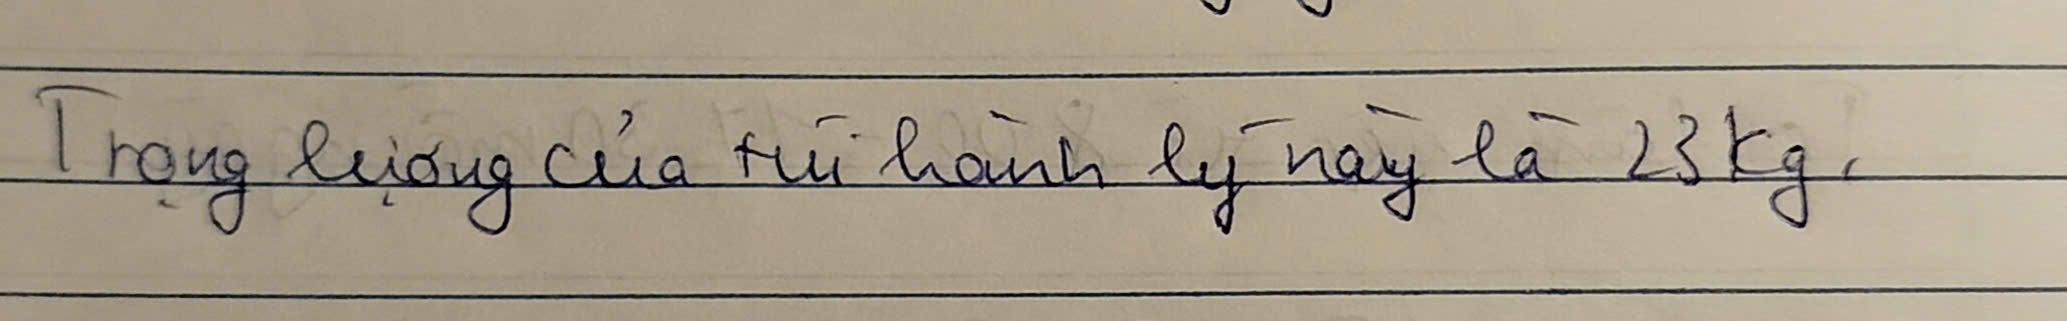 Trọng lượng của túi hành lý này là 23kg.